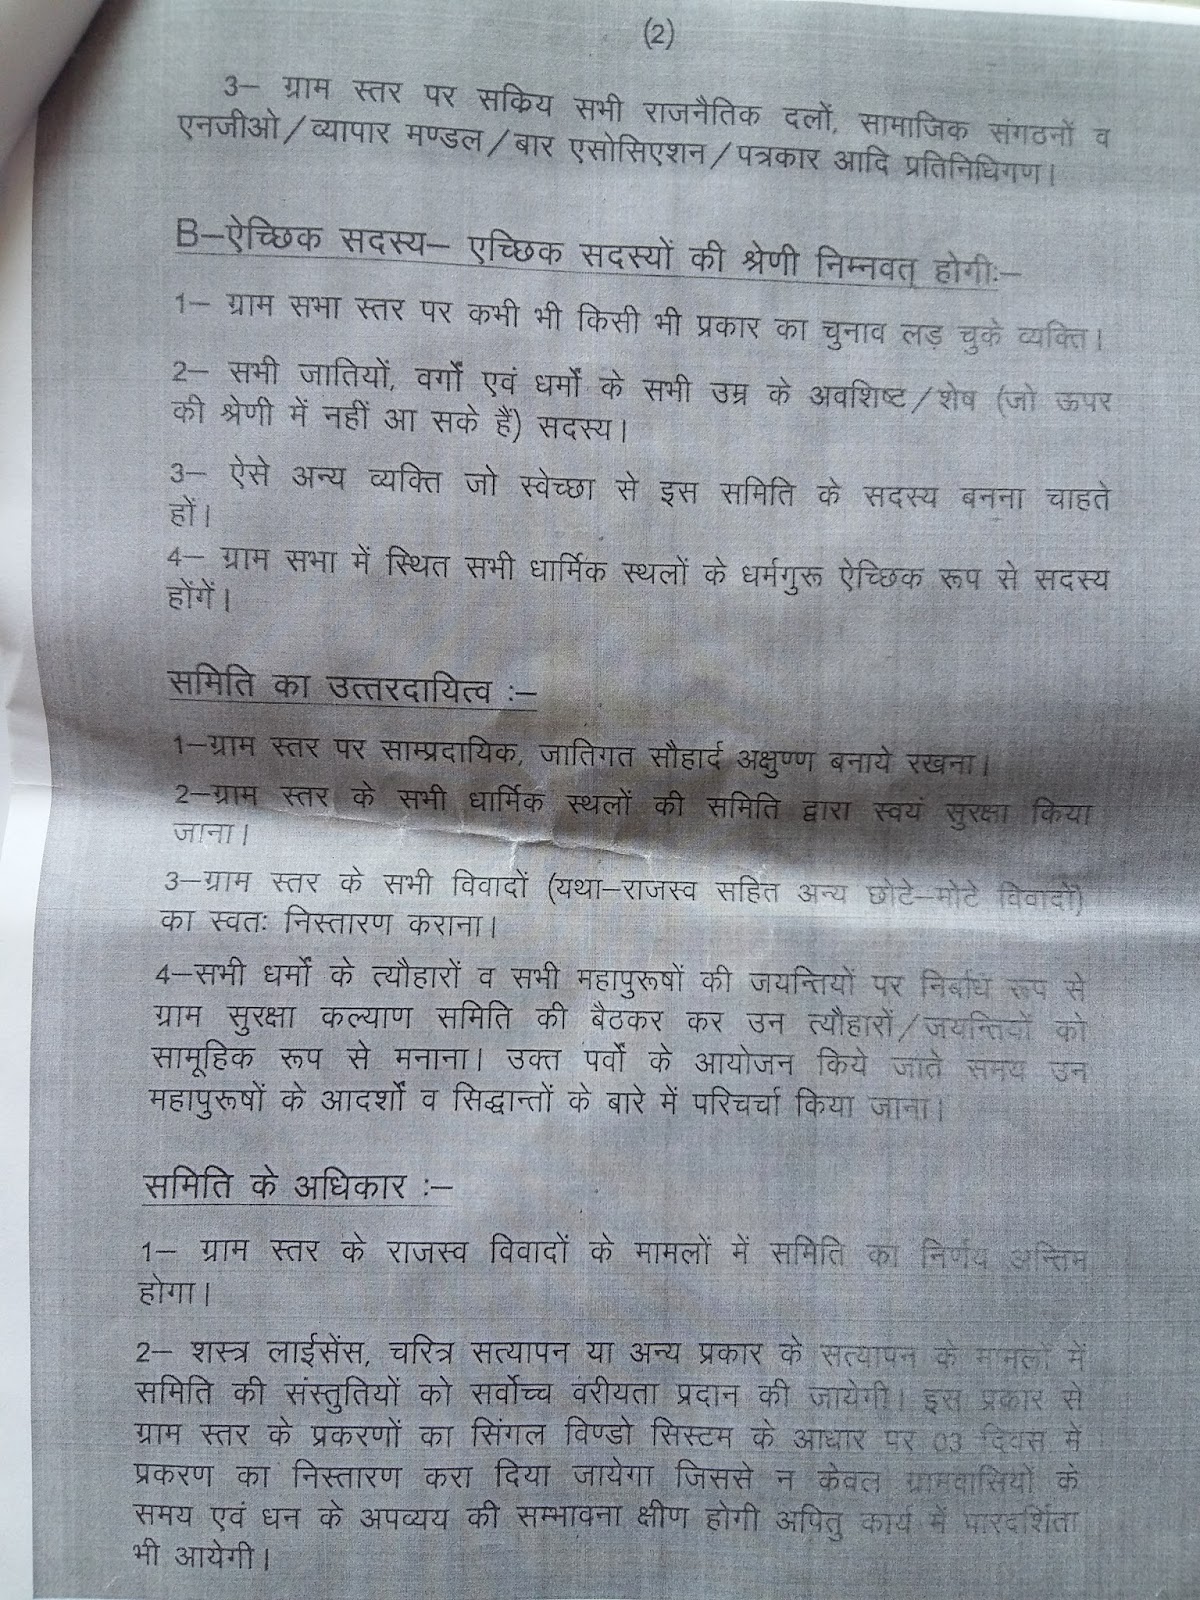 (2)
3– ग्राम स्तर पर सक्रिय सभी राजनैतिक दलों, सामाजिक संगठनों व
एनजीओ/व्यापार मण्डल/बार एसोसिएशन/पत्रकार आदि प्रतिनिधिगण।
B–ऐच्छिक सदस्य– एच्छिक सदस्यों की श्रेणी निम्नवत् होगीः–
1– ग्राम सभा स्तर पर कभी भी किसी भी प्रकार का चुनाव लड़ चुके व्यक्ति।
2– सभी जातियों, वर्गों एवं धर्मों के सभी उम्र के अवशिष्ट/शेष (जो ऊपर
की श्रेणी में नहीं आ सके हैं) सदस्य।
3– ऐसे अन्य व्यक्ति जो स्वेच्छा से इस समिति के सदस्य बनना चाहते
हों।
4– ग्राम सभा में स्थित सभी धार्मिक स्थलों के धर्मगुरू ऐच्छिक रूप से सदस्य
होंगें।
समिति का उत्तरदायित्व :–
1–ग्राम स्तर पर साम्प्रदायिक, जातिगत सौहार्द अक्षुण्ण बनाये रखना।
2–ग्राम स्तर के सभी धार्मिक स्थलों की समिति द्वारा स्वयं सुरक्षा किया
जाना।
3–ग्राम स्तर के सभी विवादों (यथा–राजस्व सहित अन्य छोटे–मोटे विवादों)
का स्वतः निस्तारण कराना।
4–सभी धर्मों के त्यौहारों व सभी महापुरूषों की जयन्तियों पर निर्बाध रूप से
ग्राम सुरक्षा कल्याण समिति की बैठकर कर उन त्यौहारों/जयन्तियों को
सामूहिक रूप से मनाना। उक्त पर्वों के आयोजन किये जाते समय उन
महापुरूषों के आदर्शों व सिद्धान्तों के बारे में परिचर्चा किया जाना।
समिति के अधिकार :–
1– ग्राम स्तर के राजस्व विवादों के मामलों में समिति का निर्णय अन्तिम
होगा।
2– शस्त्र लाईसेंस, चरित्र सत्यापन या अन्य प्रकार के सत्यापन के मामलों में
समिति की संस्तुतियों को सर्वोच्च वरीयता प्रदान की जायेगी। इस प्रकार से
ग्राम स्तर के प्रकरणों का सिंगल विण्डो सिस्टम के आधार पर 03 दिवस में
प्रकरण का निस्तारण करा दिया जायेगा जिससे न केवल ग्रामवासियों के
समय एवं धन के अपव्यय की सम्भावना क्षीण होगी अपितु कार्य में पारदर्शिता
भी आयेगी।